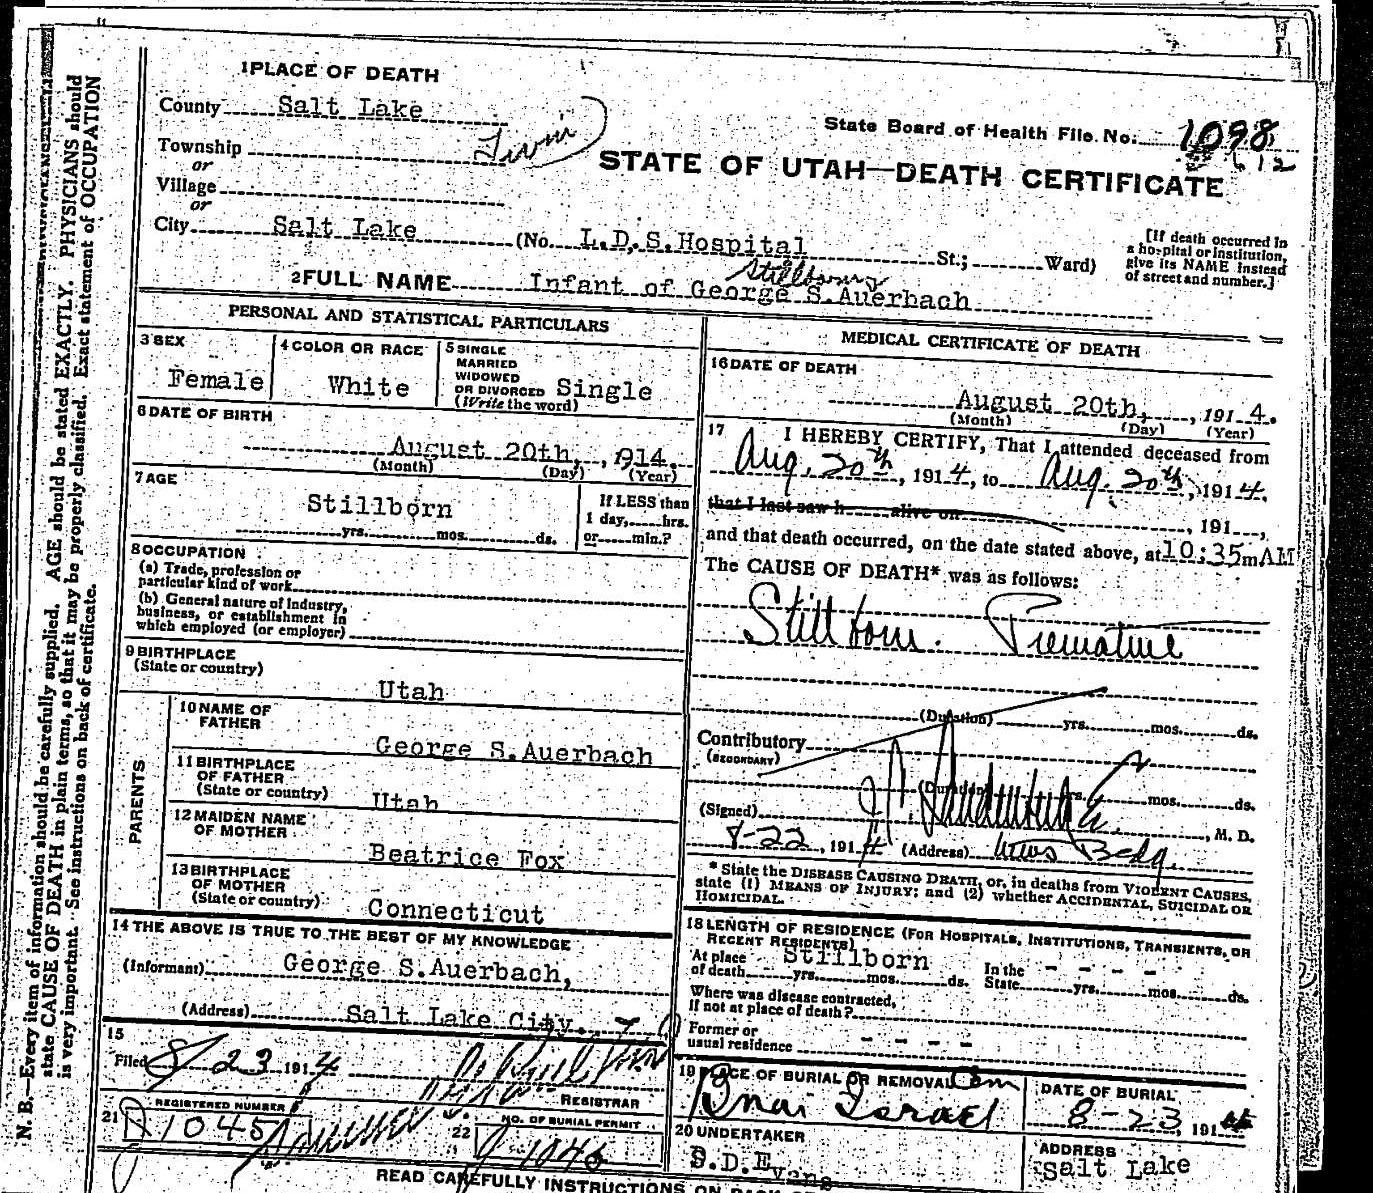 N. B.—Every item of information should be carefully supplied. AGE should be stated EXACTLY. PHYSICIANS should
state CAUSE OF DEATH in plain terms, so that it may be properly classified. Exact statement of OCCUPATION
is very important. See instructions on back of certificate.
1 PLACE OF DEATH
County Salt Lake
Township
or
Village
or
City Salt Lake (No. L.D.S. Hospital St.; Ward)
State Board of Health File No. 1098
612
STATE OF UTAH—DEATH CERTIFICATE
[If death occurred in
a hospital or institution,
give its NAME instead
of street and number.]
Stillborn
2 FULL NAME Infant of George S. Auerbach
PERSONAL AND STATISTICAL PARTICULARS
3 SEX
Female
4 COLOR OR RACE
White
5 SINGLE
MARRIED
WIDOWED
OR DIVORCED Single
(Write the word)
6 DATE OF BIRTH
August 20th, 1914.
(Month) (Day) (Year)
7 AGE
Stillborn
yrs. mos. ds.
If LESS than
1 day, hrs.
or min.?
8 OCCUPATION
(a) Trade, profession or
particular kind of work
(b) General nature of industry,
business, or establishment in
which employed (or employer)
9 BIRTHPLACE
(State or country)
Utah
PARENTS
10 NAME OF
FATHER
George S. Auerbach
11 BIRTHPLACE
OF FATHER
(State or country) Utah
12 MAIDEN NAME
OF MOTHER
Beatrice Fox
13 BIRTHPLACE
OF MOTHER
(State or country) Connecticut
14 THE ABOVE IS TRUE TO THE BEST OF MY KNOWLEDGE
(Informant) George S. Auerbach,
(Address) Salt Lake City.
15
Filed 8/23 1914
REGISTRAR
21 REGISTERED NUMBER
1045
22 NO. OF BURIAL PERMIT
1046
MEDICAL CERTIFICATE OF DEATH
16 DATE OF DEATH
August 20th, , 1914.
(Month) (Day) (Year)
17 I HEREBY CERTIFY, That I attended deceased from
Aug. 20th, 1914, to Aug. 20th, 1914.
that I last saw h alive on , 191 ,
and that death occurred, on the date stated above, at 10:35 m. AM
The CAUSE OF DEATH* was as follows:
Stillborn. Premature
(Duration) yrs. mos. ds.
Contributory
(SECONDARY)
(Duration) yrs. mos. ds.
(Signed) , M. D.
8-22, 1914 (Address) Bldg.
* State the DISEASE CAUSING DEATH, or, in deaths from VIOLENT CAUSES,
state (1) MEANS OF INJURY; and (2) whether ACCIDENTAL, SUICIDAL OR
HOMICIDAL.
18 LENGTH OF RESIDENCE (FOR HOSPITALS, INSTITUTIONS, TRANSIENTS, OR
RECENT RESIDENTS)
At place Stillborn
of death yrs. mos. ds. In the State - - - - yrs. mos. ds.
Where was disease contracted,
if not at place of death?
Former or
usual residence - - - -
19 PLACE OF BURIAL OR REMOVAL Cem
Bnai Israel
DATE OF BURIAL
8-23, 1914
20 UNDERTAKER
S. D. Evans
ADDRESS
Salt Lake
READ CAREFULLY INSTRUCTIONS ON BACK OF